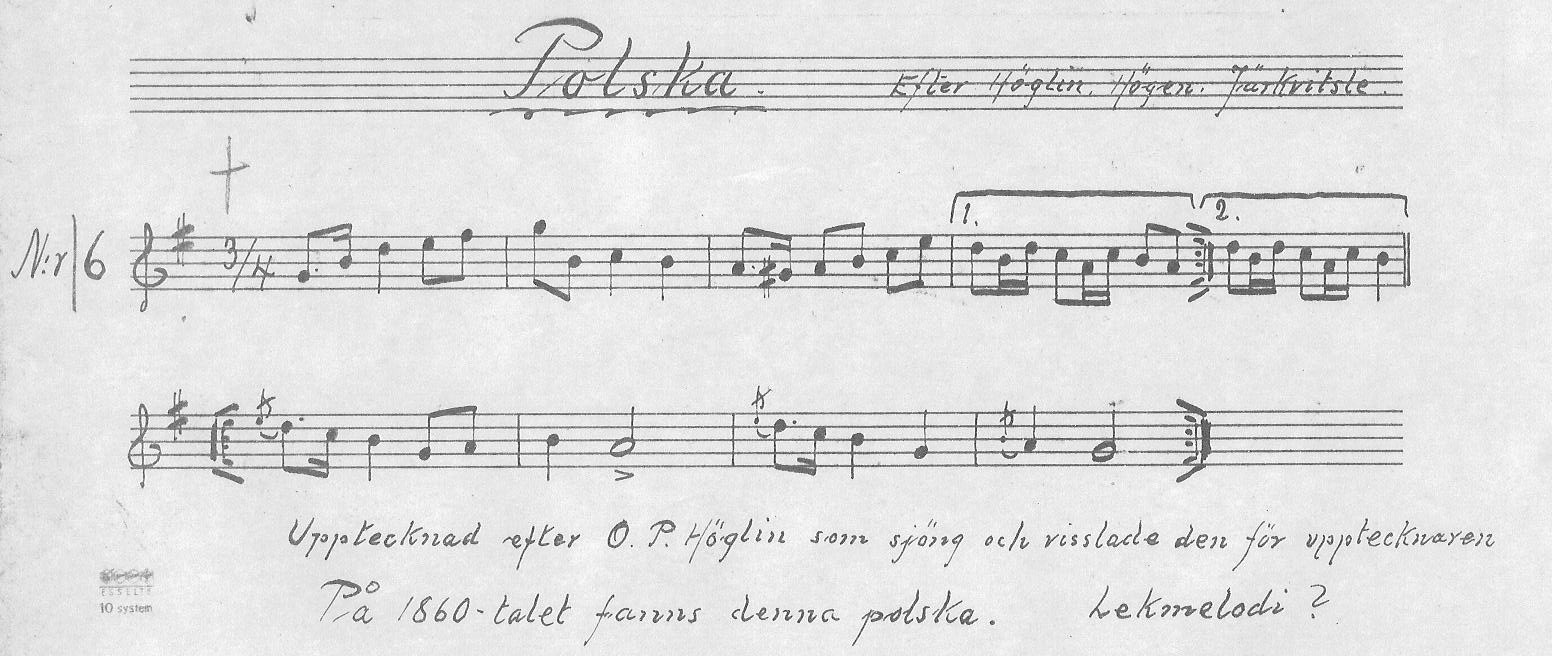 Polska.
Efter Höglin. Högen. Järkvitsle.
N:r 6
3/4
1.
2.
Upptecknad efter O. P. Höglin som sjöng och visslade den för upptecknaren
På 1860-talet fanns denna polska. Lekmelodi?
ESSELTE
10 system